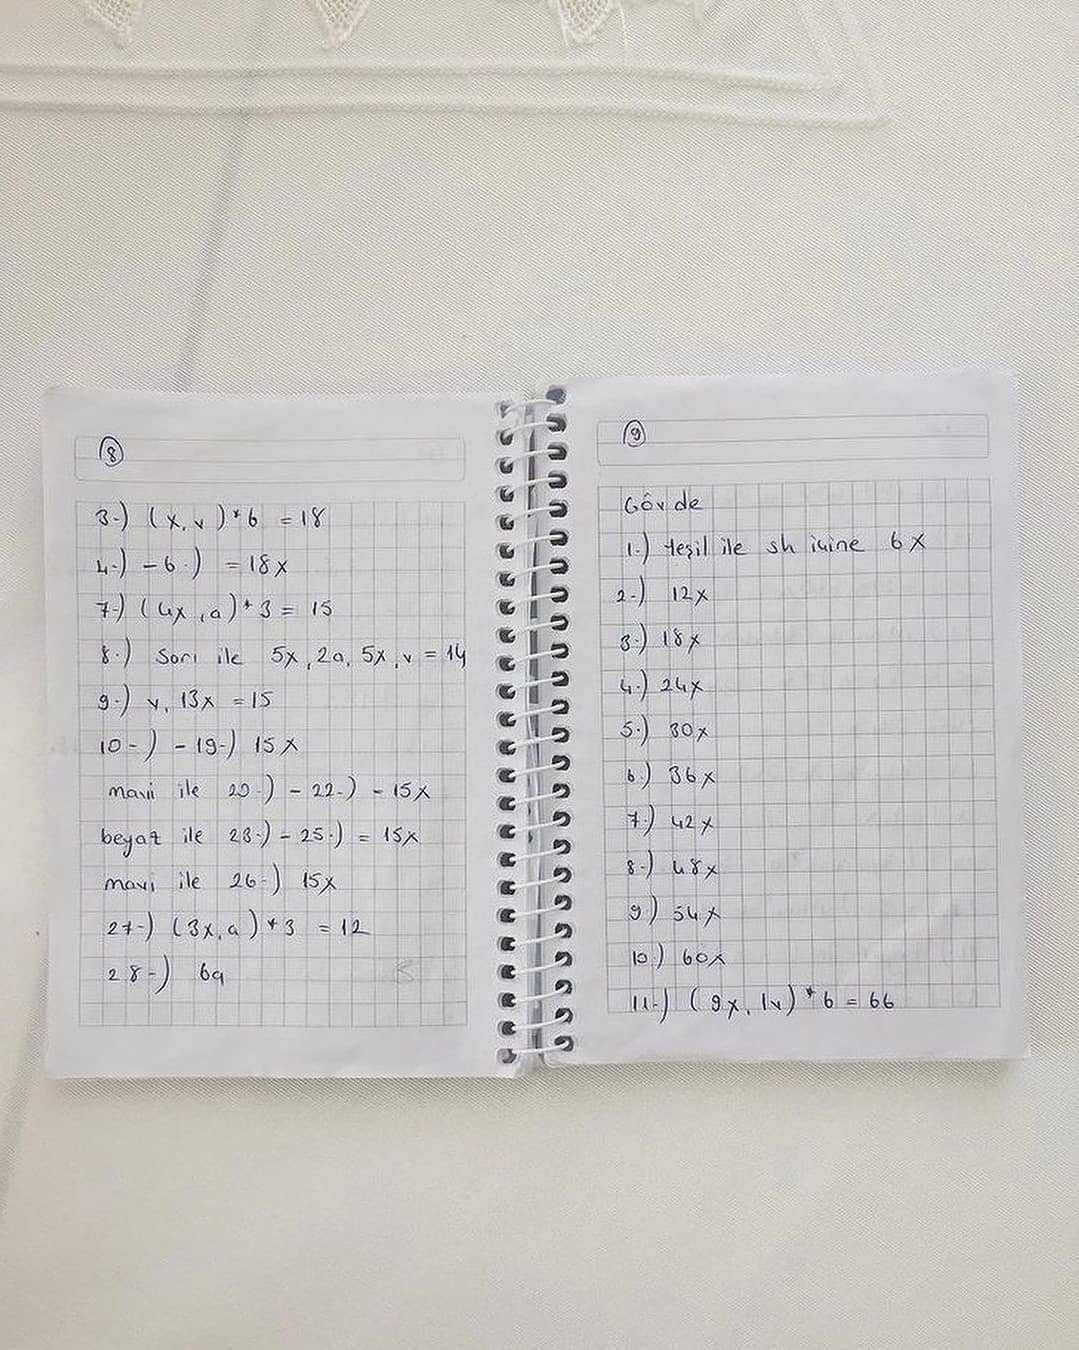 8
3-) (x, v)*6 = 18
4-) - 6-) = 18x
7-) (4x, a)*3 = 15
8-) Sarı ile 5x, 2a, 5x, v = 14
9-) v, 13x = 15
10-) - 19-) 15x
mavi ile 20-) - 22-) - 15x
beyaz ile 23-) - 25-) = 15x
mavi ile 26-) 15x
27-) (3x, a)*3 = 12
28-) 6a
9
Gövde
1-) Yeşil ile sh içine 6x
2-) 12x
3-) 18x
4-) 24x
5-) 30x
6-) 36x
7-) 42x
8-) 48x
9-) 54x
10-) 60x
11-) (9x, 1v)*6 = 66